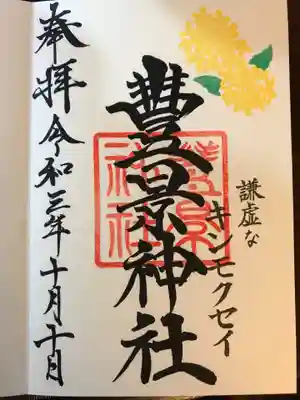 謙虚な
キンモクセイ
豊景神社
奉拝 令和三年十月十日